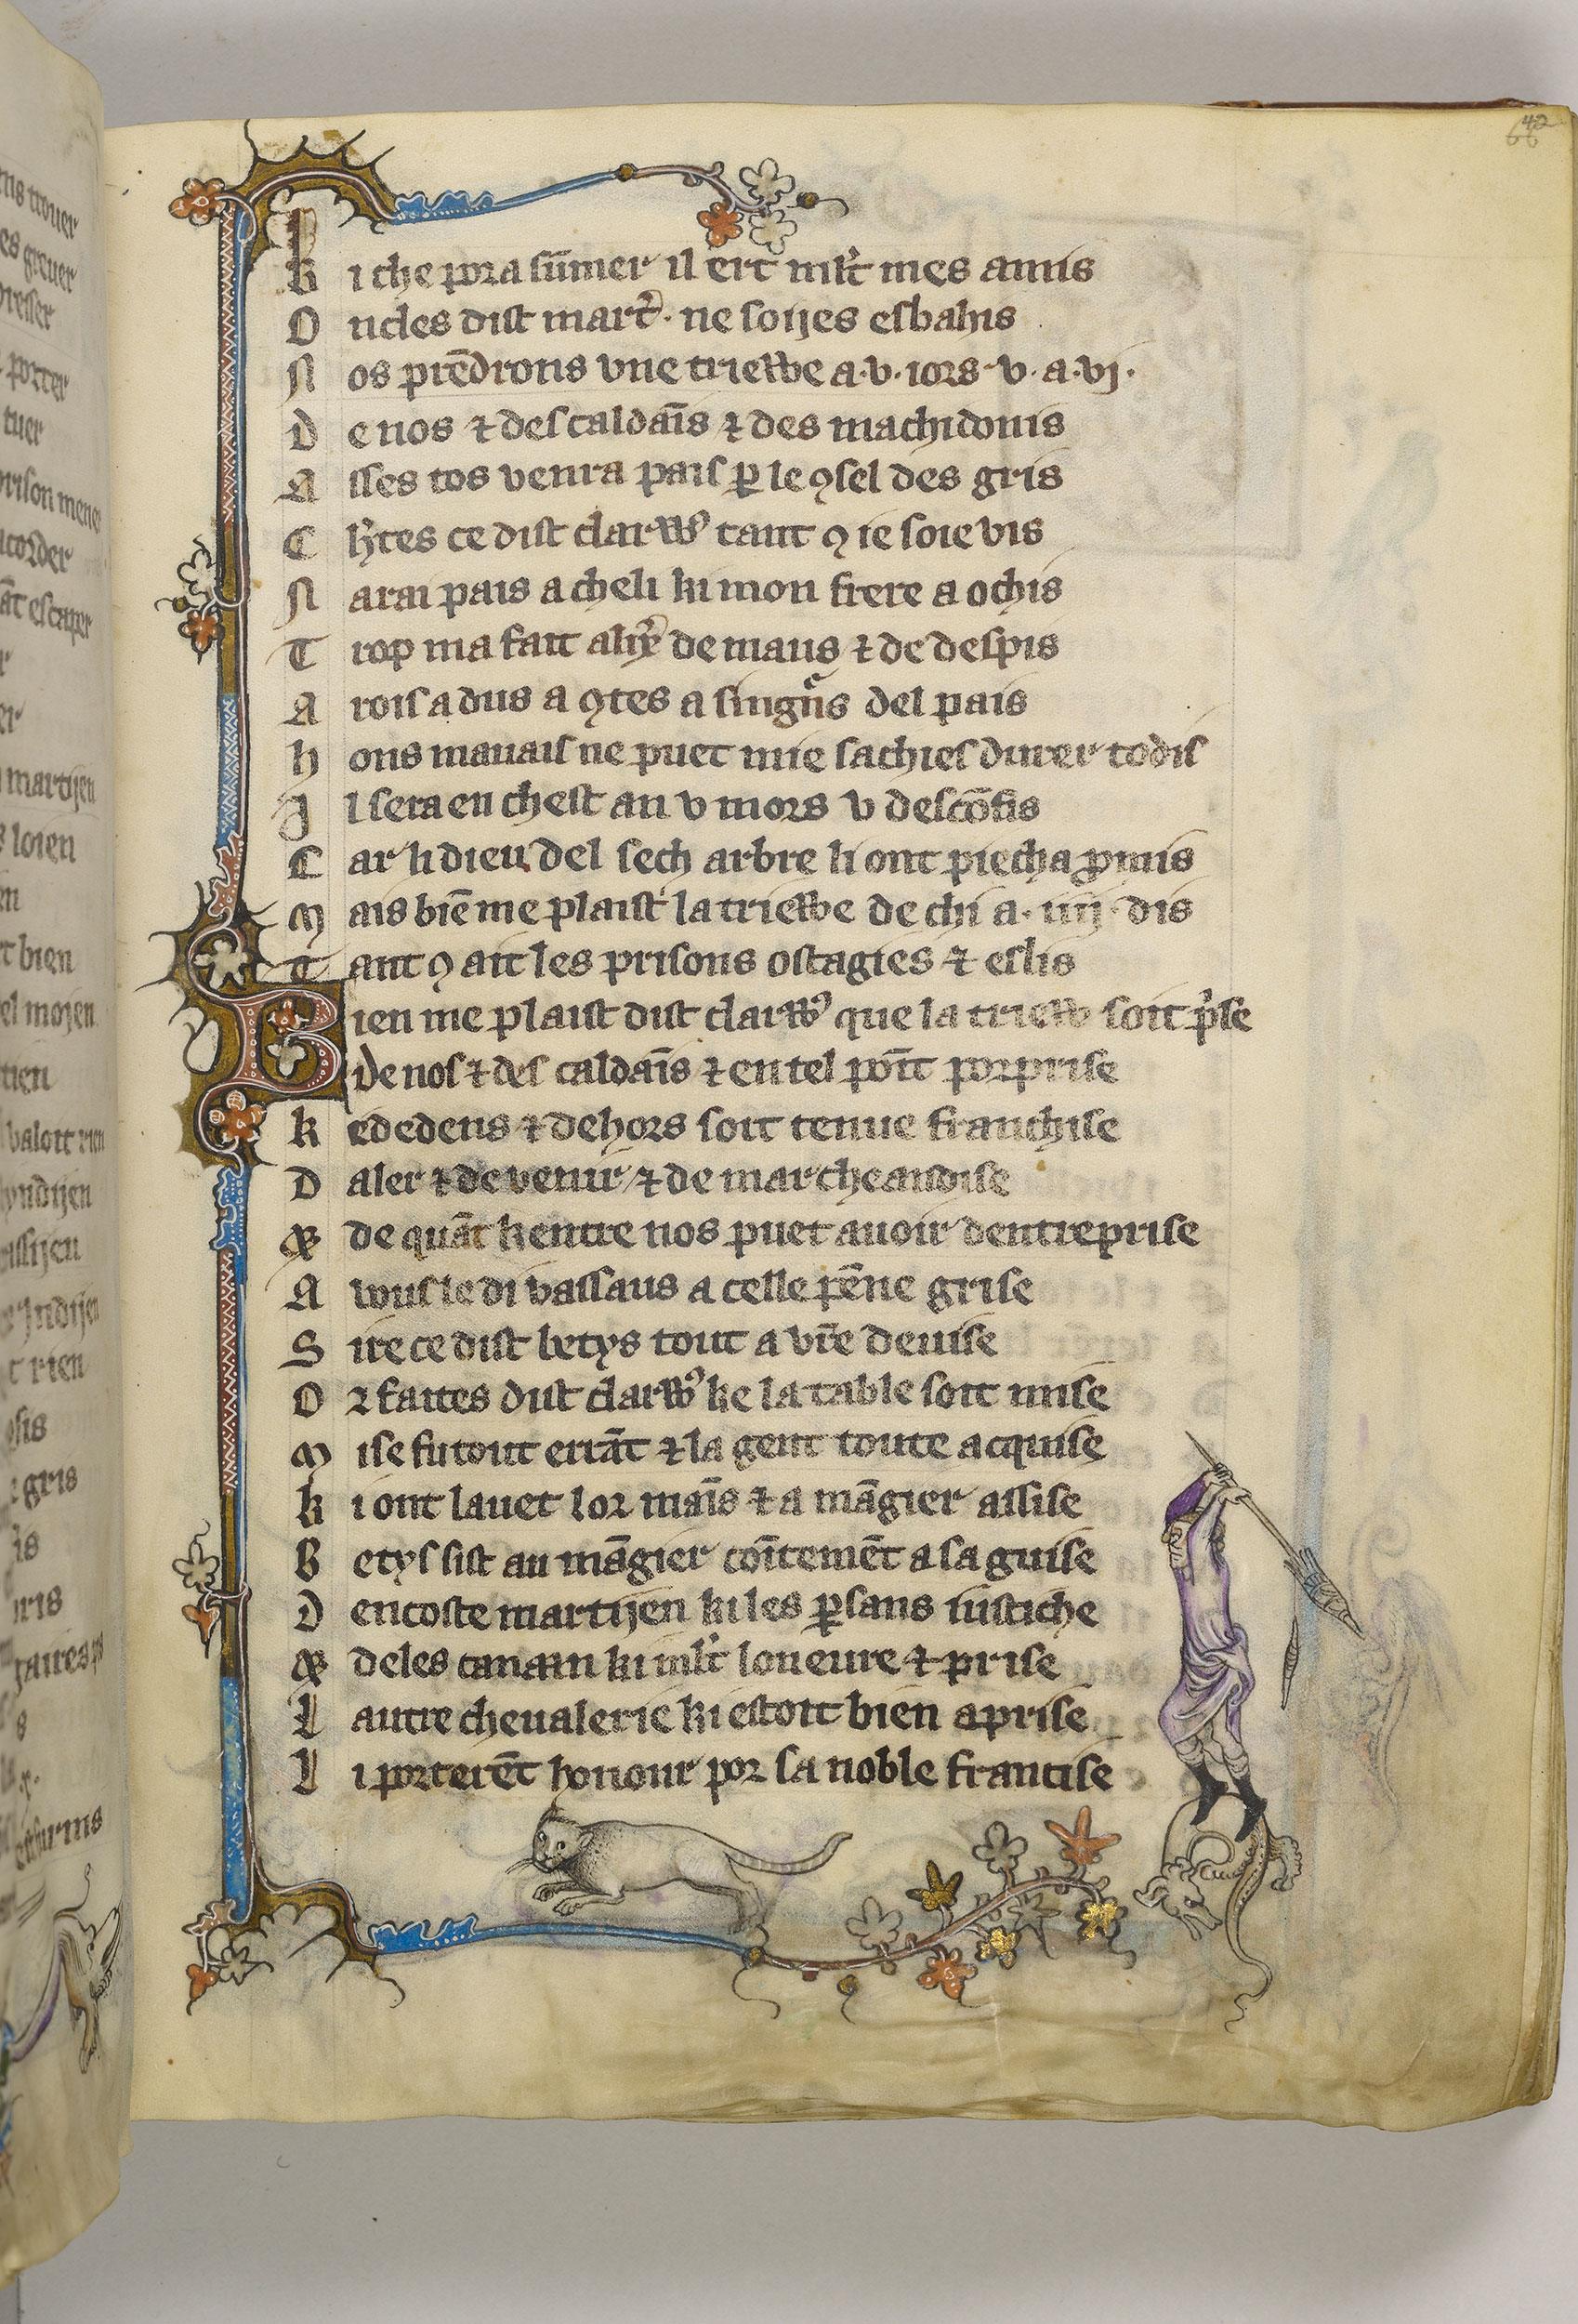 42
66
Riche pora sūmer il ert mlt̛ mes amis
Oncles dist mart̛. ne soijes esbahis
Nos prēdrons vne triewe a.v.iors v.a.vj.
De nos ⁊ des caldaīs ⁊ des machidonis
Asses tos venra pais ꝑ le ꝯsel des gris
Ch̛tes ce dist clarwꝰ tant ꝯ ie soie vis
Narai pais a cheli ki mon frere a ochis
Trop ma fait alix̛ de maus ⁊ de despis
A rois a dus a ꝯtes a singn̛s del pais
hons mauais ne puet mie sachies durer todis
Il sera en chest an v mors v descōfis
Car li dieu del sech arbre li ont piecha ꝓmis
Mais biē me plaist la triewe de chi a.iiij.dis
Tant ꝯ ait les prisons ostagies ⁊ eslis
Bien me plaist dist clarwꝰ que la triew soit p̛se
De nos ⁊ des caldaīs ⁊ en tel poīt porprise
ke dedens ⁊ dehors soit tenue franchise
Daler ⁊ de venir ⁊ de marcheandise
⁊ de quāt kentre nos puet auoir dentreprise
A wus le di vassaus a celle pēne grise
Sire ce dist betys tout a vr̄e deuise
Or faites dist clarwꝰ ke la table soit mise
Mise fu tout errāt ⁊ la gent toute acquise
ki ont lauet lor maīs ⁊ a māgier assise
Betys sist au māgier coītemēt a sa guise
Dencoste martijen ki les ꝑsans iustiche
⁊ deles canaan ki mlt̛ loneure ⁊ prise
Lautre cheualerie ki estoit bien aprise
Li porterēt honour por sa noble francise